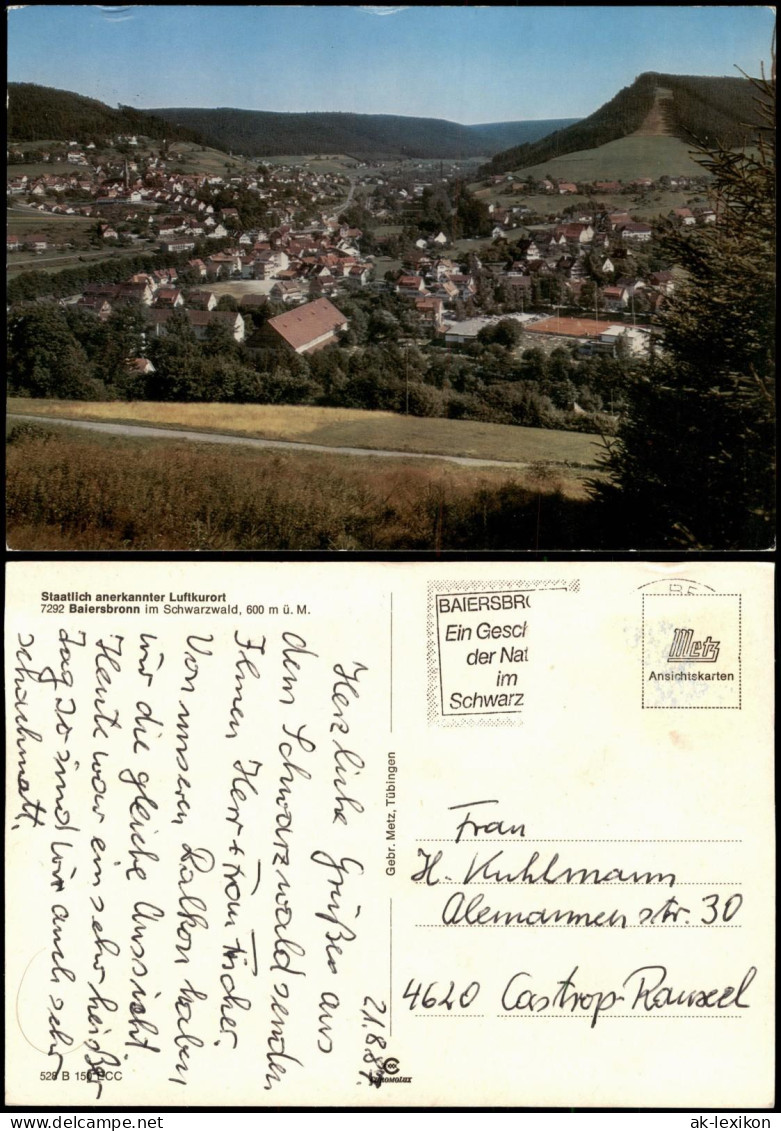 Staatlich anerkannter Luftkurort
7292 Baiersbronn im Schwarzwald, 600 m ü. M.
21.8.87.
Herzliche Grüße aus
dem Schwarzwald senden
Ihnen Herr + Frau Fischer.
Von unseren Balkon haben
wir die gleiche Aussicht
Heute war ein sehr heißer
Tag so sind wir auch sehr
schachmatt.
528 B 150 BCC
Gebr. Metz, Tübingen
CHROMOLUX
BAIERSBR
Ein Gesch
der Nat
im
Schwarz
Metz
Ansichtskarten
Frau
H. Kuhlmann
Alemannenstr. 30
4620 Castrop-Rauxel
ak-lexikon